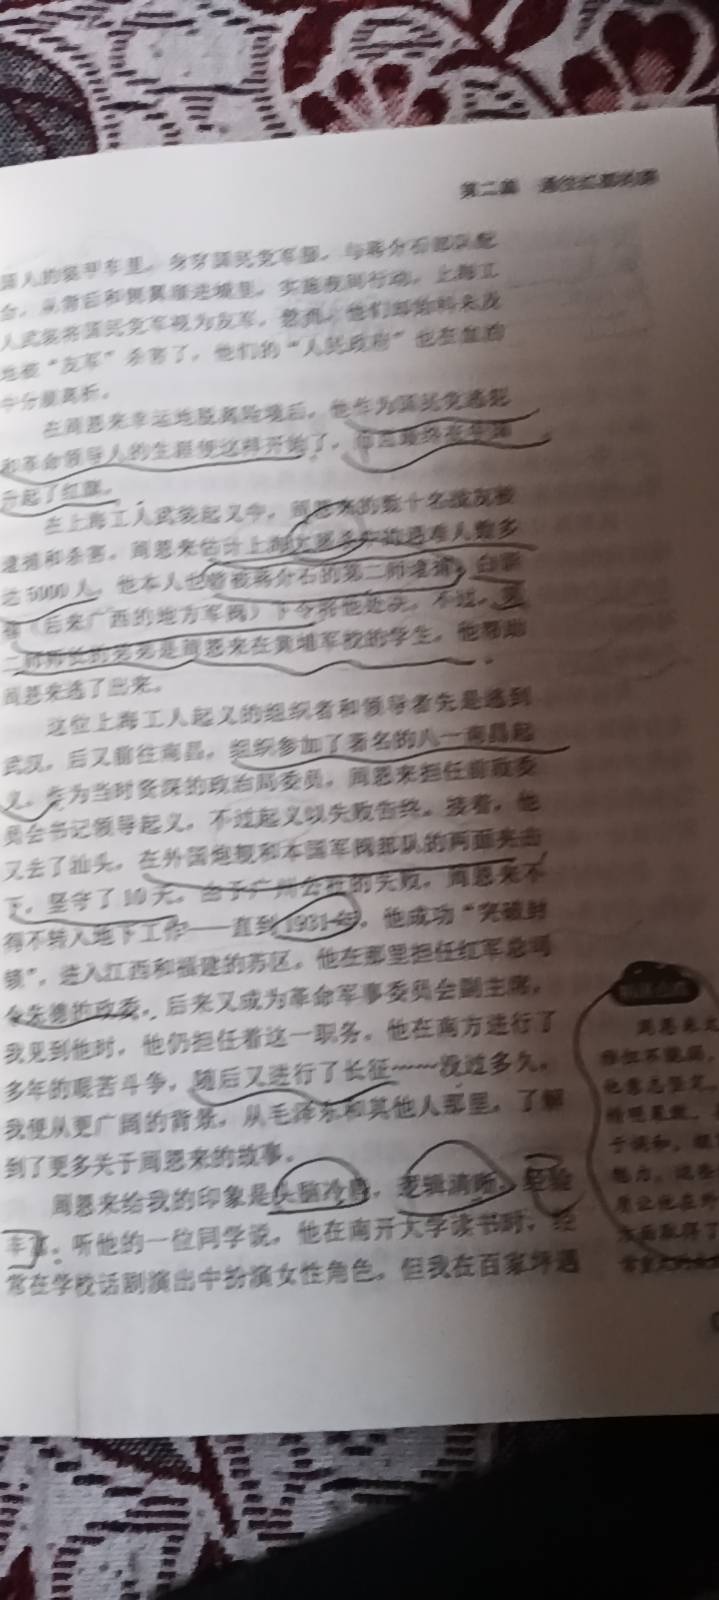 第二篇 通往红都的路
国人的装甲车里，身穿国民党军服，与蒋介石部队配
合，从背后和侧翼
人武装将国民党军视为友军，
地被“友军”杀害了，他们的“人民政府”也在血泊
中分崩离析。
在周恩来幸运地脱离险境后，他作为国民党逃犯
和革命领导人的生涯便这样开始了，
升起了红旗。
在上海工人武装起义中，周恩来的数十名战友被
逮捕和杀害。周恩来估计上海大屠杀中的遇难人数多
达5000人。他本人也曾被蒋介石的第二师逮捕，白崇
禧（后来广西的地方军阀）下令将他处决。不过，第
二师师长的弟弟是周恩来在黄埔军校的学生，他帮助
周恩来逃了出来。
这位上海工人起义的组织者和领导者先是逃到
武汉，后又前往南昌，组织参加了著名的八一南昌起
义。作为当时资深的政治局委员，周恩来担任前敌委
员会书记领导起义，不过起义以失败告终。接着，他
又去了汕头，在外国炮舰和本国军阀部队的两面夹击
下，坚守了10天。由于广州公社的失败，周恩来不
得不转入地下工作——直到1931年，他成功“突破封
锁”，进入江西和福建的苏区。他在那里担任红军总司
令朱德的政委，后来又成为革命军事委员会副主席，
我见到他时，他仍担任着这一职务。他在南方进行了
多年的艰苦斗争，随后又进行了长征……没过多久，
我便从更广阔的背景，从毛泽东和其他人那里，了解
到了更多关于周恩来的故事。
周恩来给我的印象是头脑冷静，逻辑清晰，经验
丰富。听他的一位同学说，他在南开大学读书时，经
常在学校话剧演出中扮演女性角色，但我在百家坪遇
周恩来